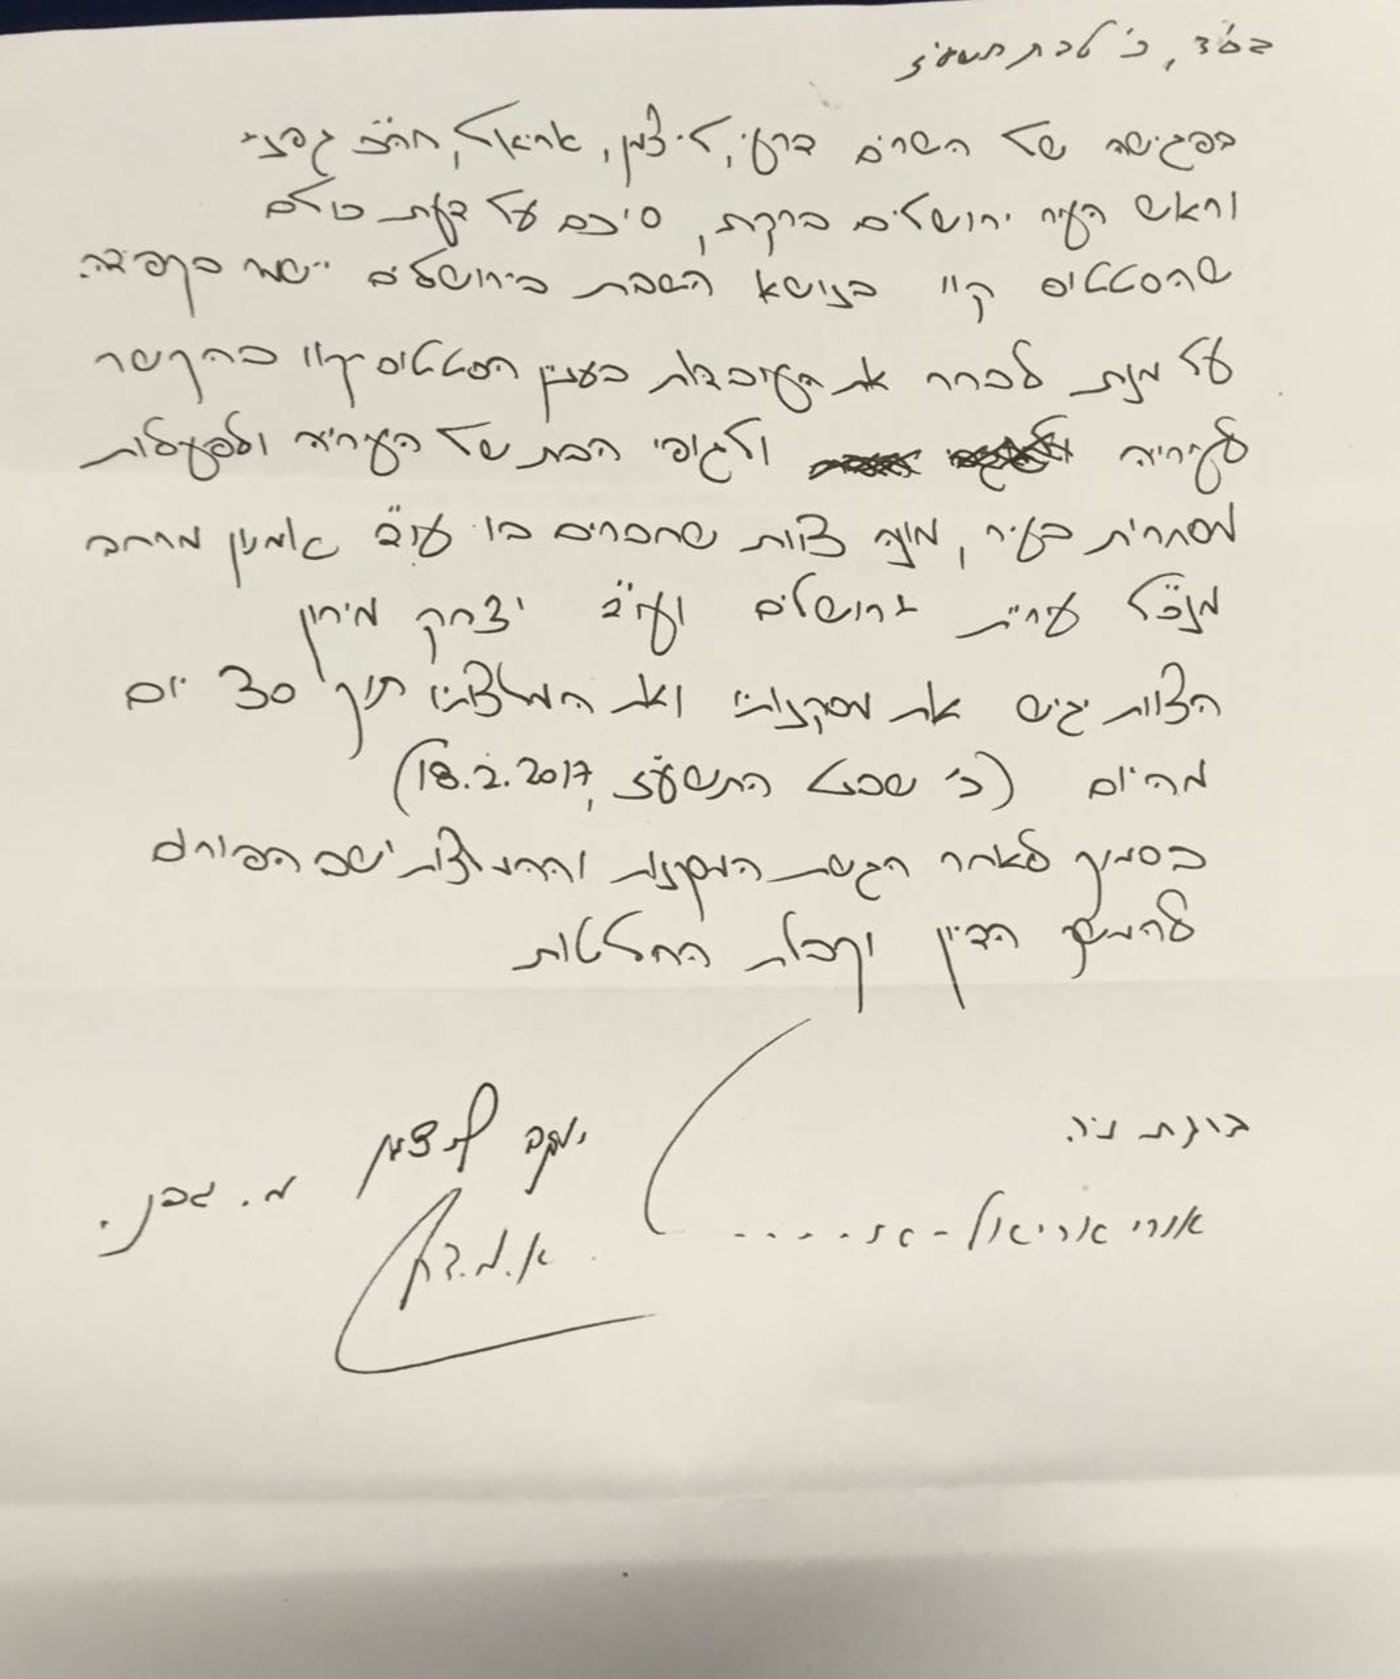 בס"ד, כ' טבת תשע"ז
בפגישה של השרים דרעי, ליצמן, אריאל, חה"כ גפני
וראש העיר ירושלים ברקת, סיכם על דעת כולם
שהסטטוס קוו בנושא השבת בירושלים יישמר בקפידה.
על מנת לברר את העובדות בענין הסטטוס-קוו בהקשר
לעיריה ולגופי הבת של העיריה ולפעילות
מסחרית בעיר, מונה צוות שחברים בו עו"ד אמנון מרחב
מנכ"ל עירית ירושלים ועו"ד יצחק מירון
הצוות יגיש את מסקנותיו ואת המלצותיו תוך 30 יום
מהיום (כ' שבט התשע"ז, 18.2.2017)
בסמוך לאחר הגשת המסקנות וההמלצות ישב הפורום
להמשך הדיון וקבלת החלטות
יעקב ליצמן
מ. גפני.
אורי אריאל -
א.מ.דרעי